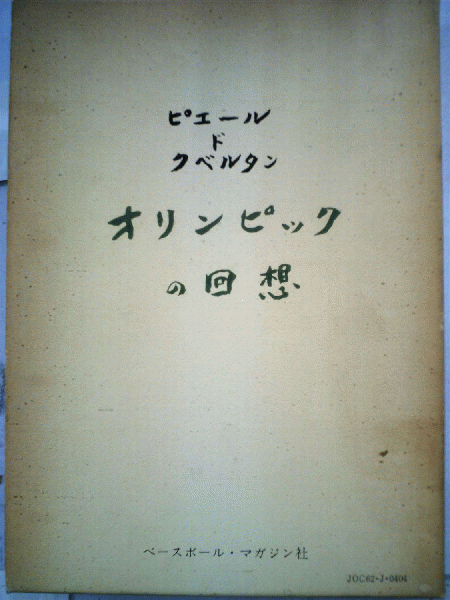 ピエール
ド
クベルタン
オリンピック
の回想
ベースボール・マガジン社
JOC62・J・0404